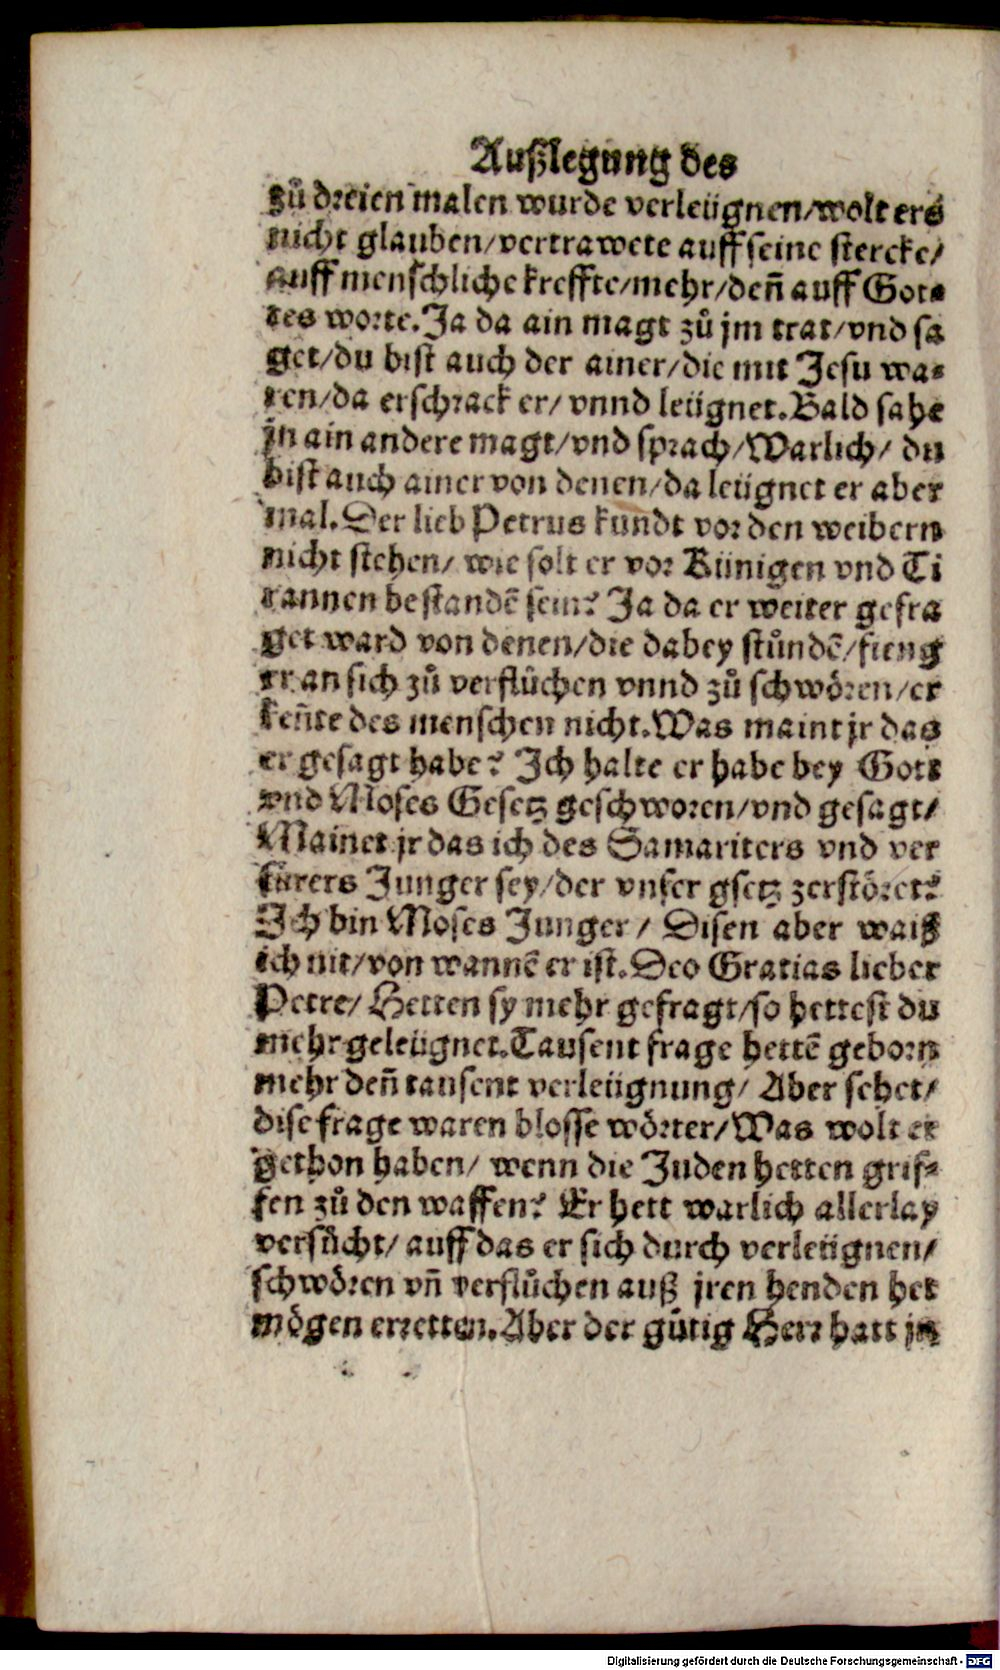 Außlegung des
zů dreien malen wurde verleügnen/wolt ers
nicht glauben/vertrawete auff seine stercke/
auff menschliche kreffte/mehr/deñ auff Got⸗
tes worte. Ja da ain magt zů jm trat/vnd sa
get/du bist auch der ainer/die mit Jesu wa⸗
ren/da erschrack er/ vnnd leügnet. Bald sahe
jn ain andere magt/vnd sprach/Warlich/ du
bist auch ainer von denen/da leügnet er aber
mal. Der lieb Petrus kundt vor den weibern
nicht stehen/ wie solt er vor Künigen vnd Ti
rannen bestandẽ sein? Ja da er weiter gefra
get ward von denen/die dabey stůndẽ/fieng
er an sich zů verflůchen vnnd zů schwören/er
keñte des menschen nicht. Was maint jr das
er gesagt habe? Ich halte er habe bey Gott
vnd Moses Gesetz geschworen/vnd gesagt/
Mainet jr das ich des Samariters vnd ver
fürers Junger sey/der vnser gsetz zerstöret?
Ich bin Moses Junger/ Disen aber waiß
ich nit/von wannẽ er ist. Deo Gratias lieber
Petre/ Hetten sy mehr gefragt/so hettest du
mehr geleügnet. Tausent frage hettẽ geborn
mehr deñ tausent verleügnung/ Aber sehet/
dise frage waren blosse wörter/Was wolt er
gethon haben/ wenn die Juden hetten grif⸗
fen zů den waffen? Er hett warlich allerlay
versůcht/ auff das er sich durch verleügnen/
schwören vñ verflůchen auß jren henden het
mögen erretten. Aber der gütig Herr hatt jn
Digitalisierung gefördert durch die Deutsche Forschungsgemeinschaft - DFG